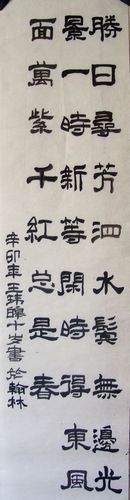 勝日尋芳泗水鬢無邊光
景一時新等閑時得東風
面萬紫千紅总是春
辛卯年王十岁書於翰林